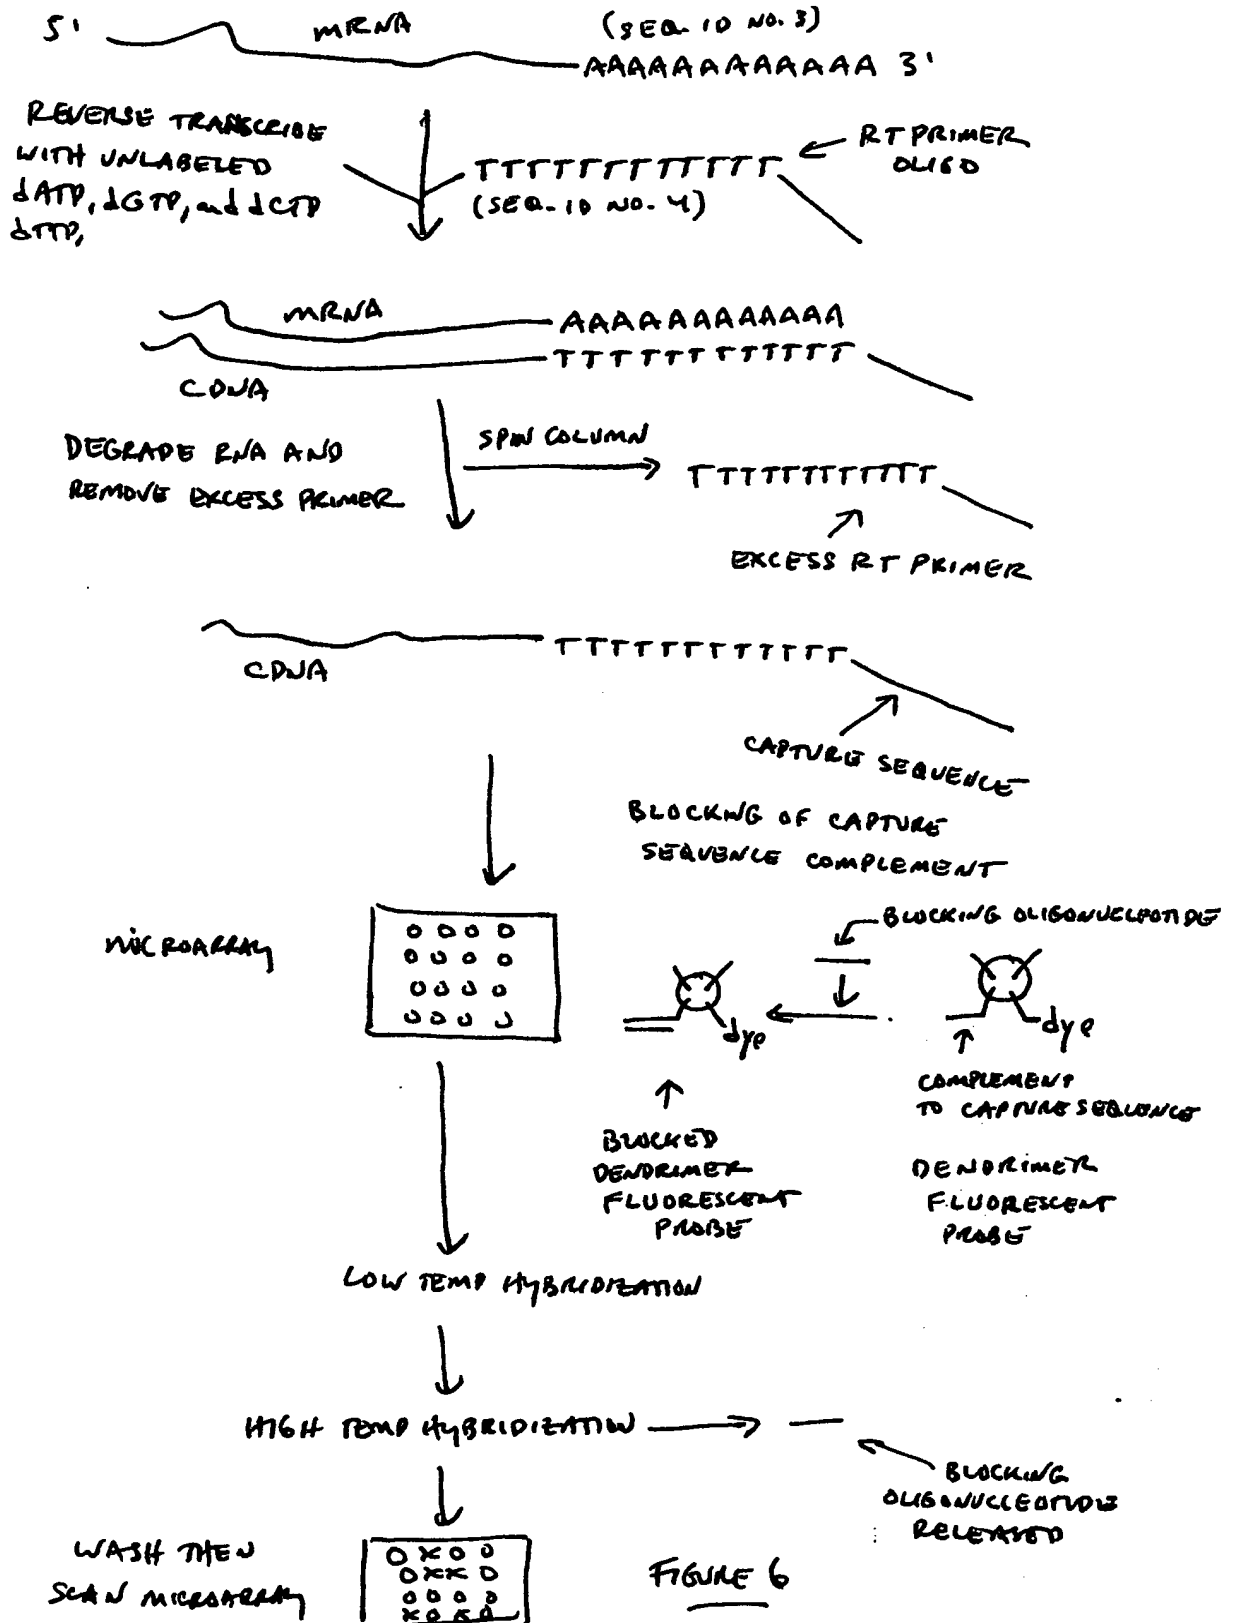 5' mRNA (SEQ. ID NO. 3)
AAAAAAAAAAAA 3'
REVERSE TRANSCRIBE
WITH UNLABELED
dATP, dGTP, and dCTP
dTTP,
TTTTTTTTTTTT
(SEQ. ID NO. 4)
RT PRIMER
OLIGO
mRNA AAAAAAAAAAAA
TTTTTTTTTTTT
CDNA
DEGRADE RNA AND
REMOVE EXCESS PRIMER
SPIN COLUMN
TTTTTTTTTTT
EXCESS RT PRIMER
TTTTTTTTTTTT
CDNA
CAPTURE SEQUENCE
BLOCKING OF CAPTURE
SEQUENCE COMPLEMENT
BLOCKING OLIGONUCLEOTIDE
MICROARRAY
dye
dye
COMPLEMENT
TO CAPTURE SEQUENCE
BLOCKED
DENDRIMER
FLUORESCENT
PROBE
DENDRIMER
FLUORESCENT
PROBE
LOW TEMP HYBRIDIZATION
HIGH TEMP HYBRIDIZATION
BLOCKING
OLIGONUCLEOTIDE
RELEASED
WASH THEN
SCAN MICROARRAY
FIGURE 6